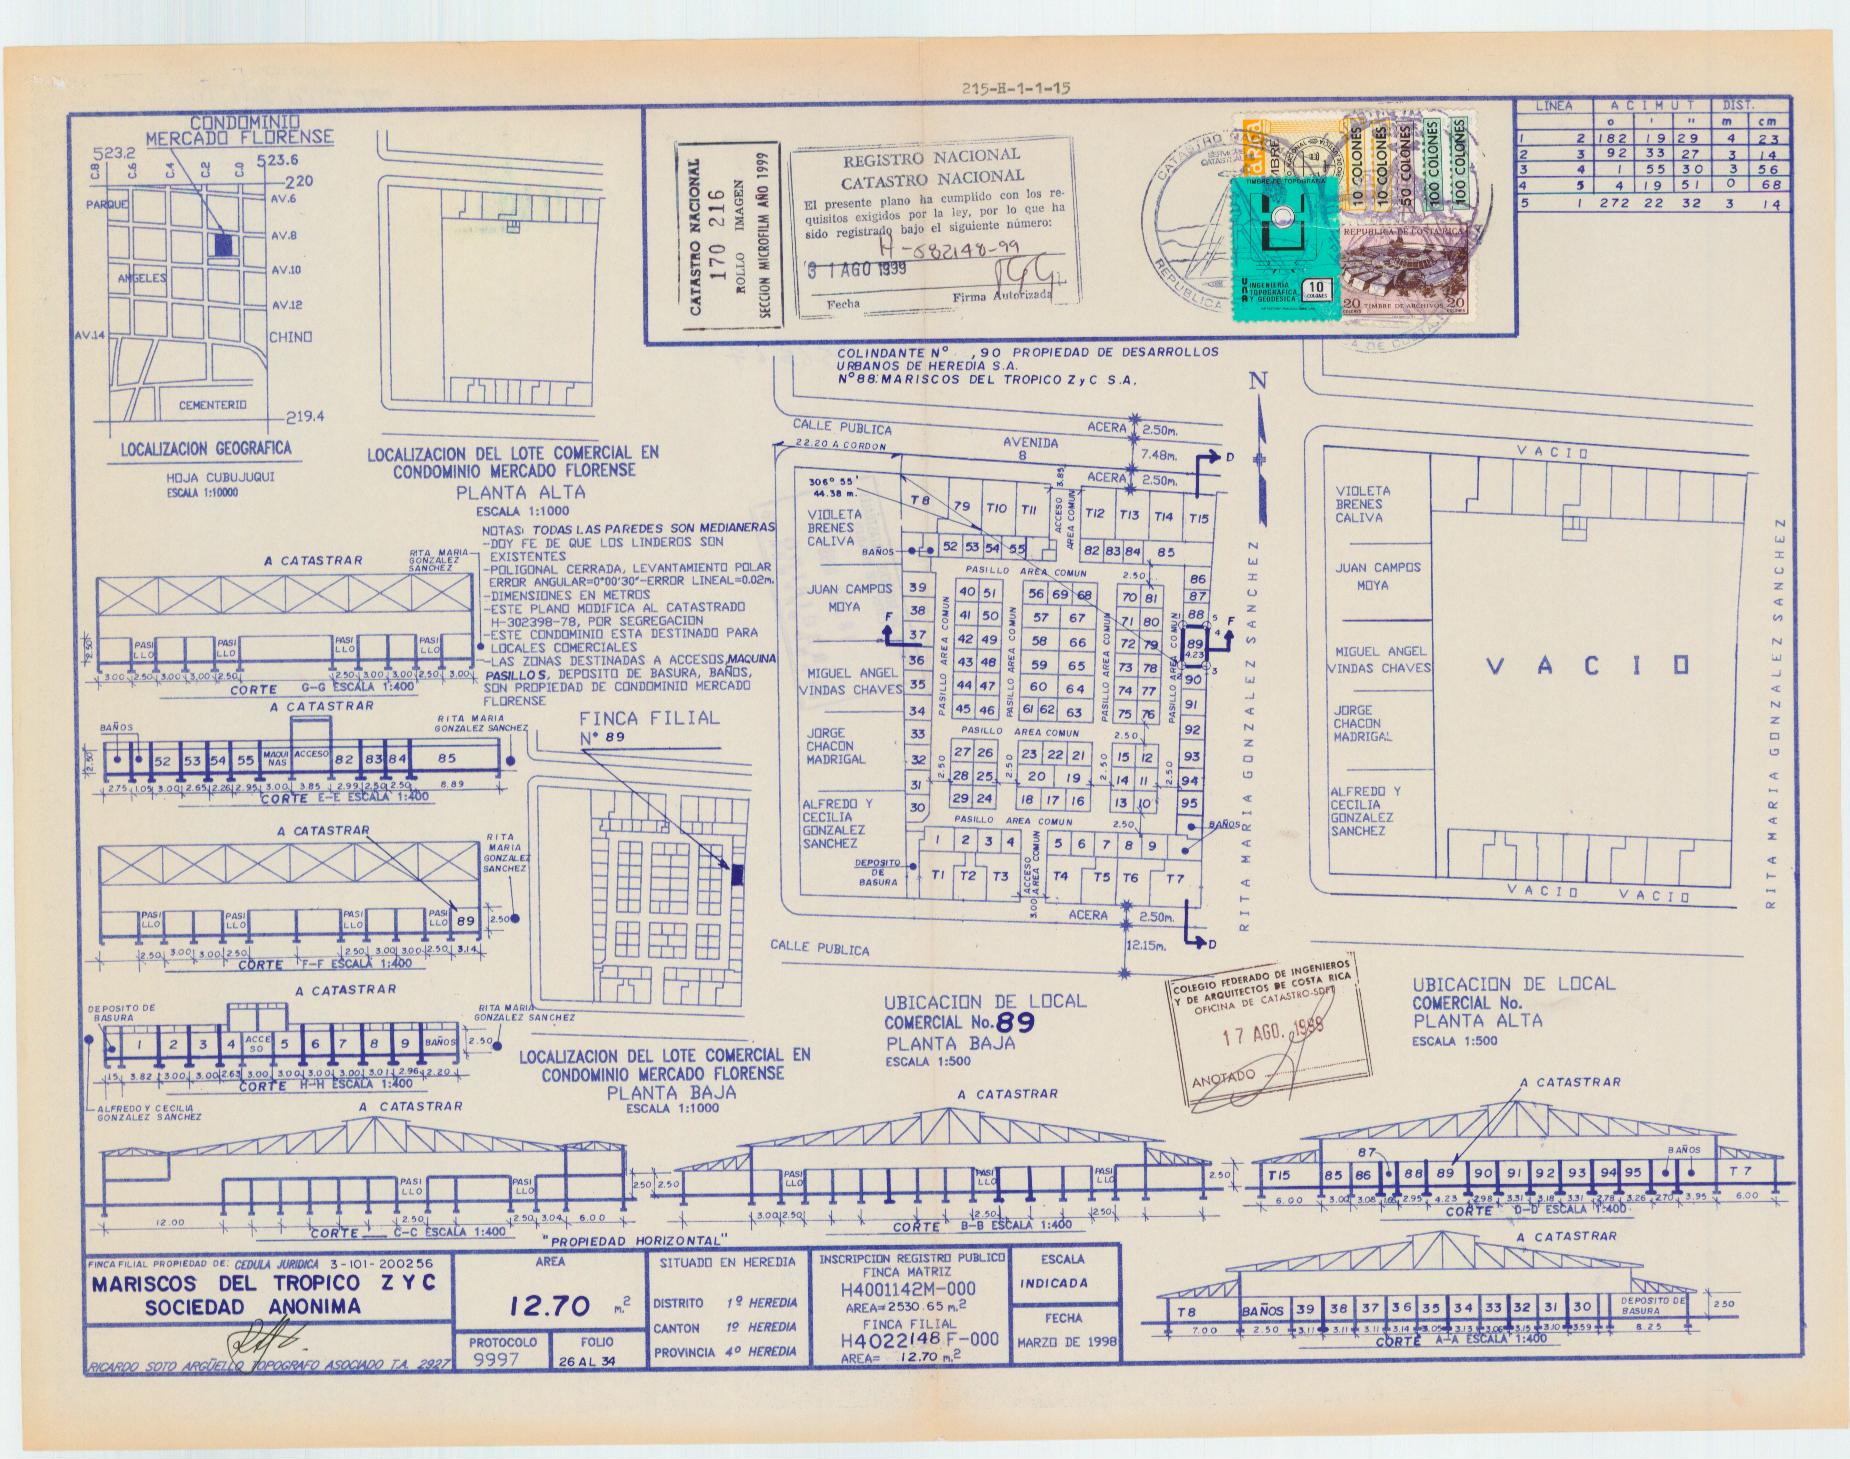 215-H-1-1-15
CONDOMINIO
MERCADO FLORENSE
523.2
523.6
C.8
C.6
C.4
C.2
C.0
220
PARQUE
AV.6
AV.8
AV.10
ANGELES
AV.12
AV.14
CHINO
CEMENTERIO
219.4
LOCALIZACION GEOGRAFICA
HOJA CUBUJUQUI
ESCALA 1:10000
LOCALIZACION DEL LOTE COMERCIAL EN
CONDOMINIO MERCADO FLORENSE
PLANTA ALTA
ESCALA 1:1000
CATASTRO NACIONAL
170 216
ROLLO IMAGEN
SECCION MICROFILM AÑO 1999
REGISTRO NACIONAL
CATASTRO NACIONAL
El presente plano ha cumplido con los re-
quisitos exigidos por la ley, por lo que ha
sido registrado bajo el siguiente número:
H-582148-99
31 AGO 1999
Fecha Firma Autorizada
TIMBRE DE TOPOGRAFIA
INGENIERIA
TOPOGRAFICA
Y GEODESICA
10
COLONES
10 COLONES
10 COLONES
50 COLONES
100 COLONES
100 COLONES
REPUBLICA DE COSTA RICA
20 TIMBRE DE ARCHIVOS 20
LINEA ACIMUT DIST.
o ' " m cm
1 2 182 19 29 4 23
2 3 92 33 27 3 14
3 4 1 55 30 3 56
4 5 4 19 51 0 68
5 1 272 22 32 3 14
COLINDANTE Nº ,90 PROPIEDAD DE DESARROLLOS
URBANOS DE HEREDIA S.A.
Nº88: MARISCOS DEL TROPICO Z y C S.A.
NOTAS: TODAS LAS PAREDES SON MEDIANERAS
-DOY FE DE QUE LOS LINDEROS SON
EXISTENTES
-POLIGONAL CERRADA, LEVANTAMIENTO POLAR
ERROR ANGULAR=0°00'30"-ERROR LINEAL=0.02m.
-DIMENSIONES EN METROS
-ESTE PLANO MODIFICA AL CATASTRADO
H-302398-78, POR SEGREGACION
-ESTE CONDOMINIO ESTA DESTINADO PARA
LOCALES COMERCIALES
-LAS ZONAS DESTINADAS A ACCESOS, MAQUINA
PASILLOS, DEPOSITO DE BASURA, BAÑOS,
SON PROPIEDAD DE CONDOMINIO MERCADO
FLORENSE
A CATASTRAR
RITA MARIA
GONZALEZ
SANCHEZ
PASI
LLO
PASI
LLO
PASI
LLO
PASI
LLO
CORTE G-G ESCALA 1:400
A CATASTRAR
BAÑOS
RITA MARIA
GONZALEZ SANCHEZ
52 53 54 55 MAQUI NAS ACCESO 82 83 84 85
2.75 1.05 3.00 2.65 2.26 2.95 3.00 3.85 2.99 2.50 2.50 8.89
CORTE E-E ESCALA 1:400
A CATASTRAR
RITA
MARIA
GONZALEZ
SANCHEZ
PASI
LLO
PASI
LLO
PASI
LLO
PASI
LLO
89
2.50
CORTE F-F ESCALA 1:400
A CATASTRAR
DEPOSITO DE
BASURA
RITA MARIA
GONZALEZ SANCHEZ
1 2 3 4 ACCE SO 5 6 7 8 9 BAÑOS
2.50
CORTE H-H ESCALA 1:400
ALFREDO Y CECILIA
GONZALEZ SANCHEZ
FINCA FILIAL
Nº 89
LOCALIZACION DEL LOTE COMERCIAL EN
CONDOMINIO MERCADO FLORENSE
PLANTA BAJA
ESCALA 1:1000
CALLE PUBLICA
ACERA 2.50m.
22.20 A CORDON
AVENIDA
8
7.48m.
ACERA 2.50m.
N
D
306° 55'
44.38 m.
VIOLETA
BRENES
CALIVA
JUAN CAMPOS
MOYA
MIGUEL ANGEL
VINDAS CHAVES
JORGE
CHACON
MADRIGAL
ALFREDO Y
CECILIA
GONZALEZ
SANCHEZ
T8 79 T10 T11
ACCESO
AREA COMUN
3.85
T12 T13 T14 T15
BAÑOS
52 53 54 55
82 83 84 85
PASILLO AREA COMUN
2.50
86
87
88
89
4.23
90
91
92
93
94
95
39 40 51 56 69 68 70 81
38 41 50 57 67 71 80
37 42 49 58 66 72 79
36 43 48 59 65 73 78
35 44 47 60 64 74 77
34 45 46 61 62 63 75 76
F
F
PASILLO AREA COMUN
PASILLO AREA COMUN
PASILLO AREA COMUN
PASILLO AREA COMUN
PASILLO AREA COMUN
2.50
33
32 27 26 23 22 21 15 12
31 28 25 20 19 14 11
30 29 24 18 17 16 13 10
PASILLO AREA COMUN
2.50
BAÑOS
1 2 3 4 5 6 7 8 9
DEPOSITO
DE
BASURA
T1 T2 T3
ACCESO
AREA COMUN
3.00
T4 T5 T6 T7
ACERA 2.50m.
D
CALLE PUBLICA
12.15m.
RITA MARIA GONZALEZ SANCHEZ
UBICACION DE LOCAL
COMERCIAL No. 89
PLANTA BAJA
ESCALA 1:500
COLEGIO FEDERADO DE INGENIEROS
Y DE ARQUITECTOS DE COSTA RICA
OFICINA DE CATASTRO-SDFT
17 AGO. 1998
ANOTADO
VACIO
VIOLETA
BRENES
CALIVA
JUAN CAMPOS
MOYA
MIGUEL ANGEL
VINDAS CHAVES
JORGE
CHACON
MADRIGAL
ALFREDO Y
CECILIA
GONZALEZ
SANCHEZ
VACIO
VACIO VACIO
RITA MARIA GONZALEZ SANCHEZ
UBICACION DE LOCAL
COMERCIAL No.
PLANTA ALTA
ESCALA 1:500
A CATASTRAR
PASI
LLO
PASI
LLO
12.00
2.50 2.50 3.04 6.00
CORTE C-C ESCALA 1:400
A CATASTRAR
PASI
LLO
PASI
LLO
PASI
LLO
2.50
CORTE B-B ESCALA 1:400
A CATASTRAR
87
BAÑOS
T15 85 86 88 89 90 91 92 93 94 95 T7
CORTE D-D ESCALA 1:400
A CATASTRAR
T8 BAÑOS 39 38 37 36 35 34 33 32 31 30 DEPOSITO DE BASURA
2.50
7.00 2.50
8.25
CORTE A-A ESCALA 1:400
"PROPIEDAD HORIZONTAL"
FINCA FILIAL PROPIEDAD DE: CEDULA JURIDICA 3-101-200256
MARISCOS DEL TROPICO Z Y C
SOCIEDAD ANONIMA
RICARDO SOTO ARGÜELLO TOPOGRAFO ASOCIADO T.A. 2927
AREA
12.70 m.2
PROTOCOLO
9997
FOLIO
26 AL 34
SITUADO EN HEREDIA
DISTRITO 1º HEREDIA
CANTON 1º HEREDIA
PROVINCIA 4º HEREDIA
INSCRIPCION REGISTRO PUBLICO
FINCA MATRIZ
H4001142M-000
AREA=2530.65 m.2
FINCA FILIAL
H4022148 F-000
AREA= 12.70 m.2
ESCALA
INDICADA
FECHA
MARZO DE 1998